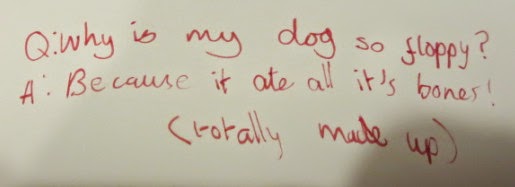 Q: Why is my dog so floppy?
A: Because it ate all it's bones!
(totally made up)